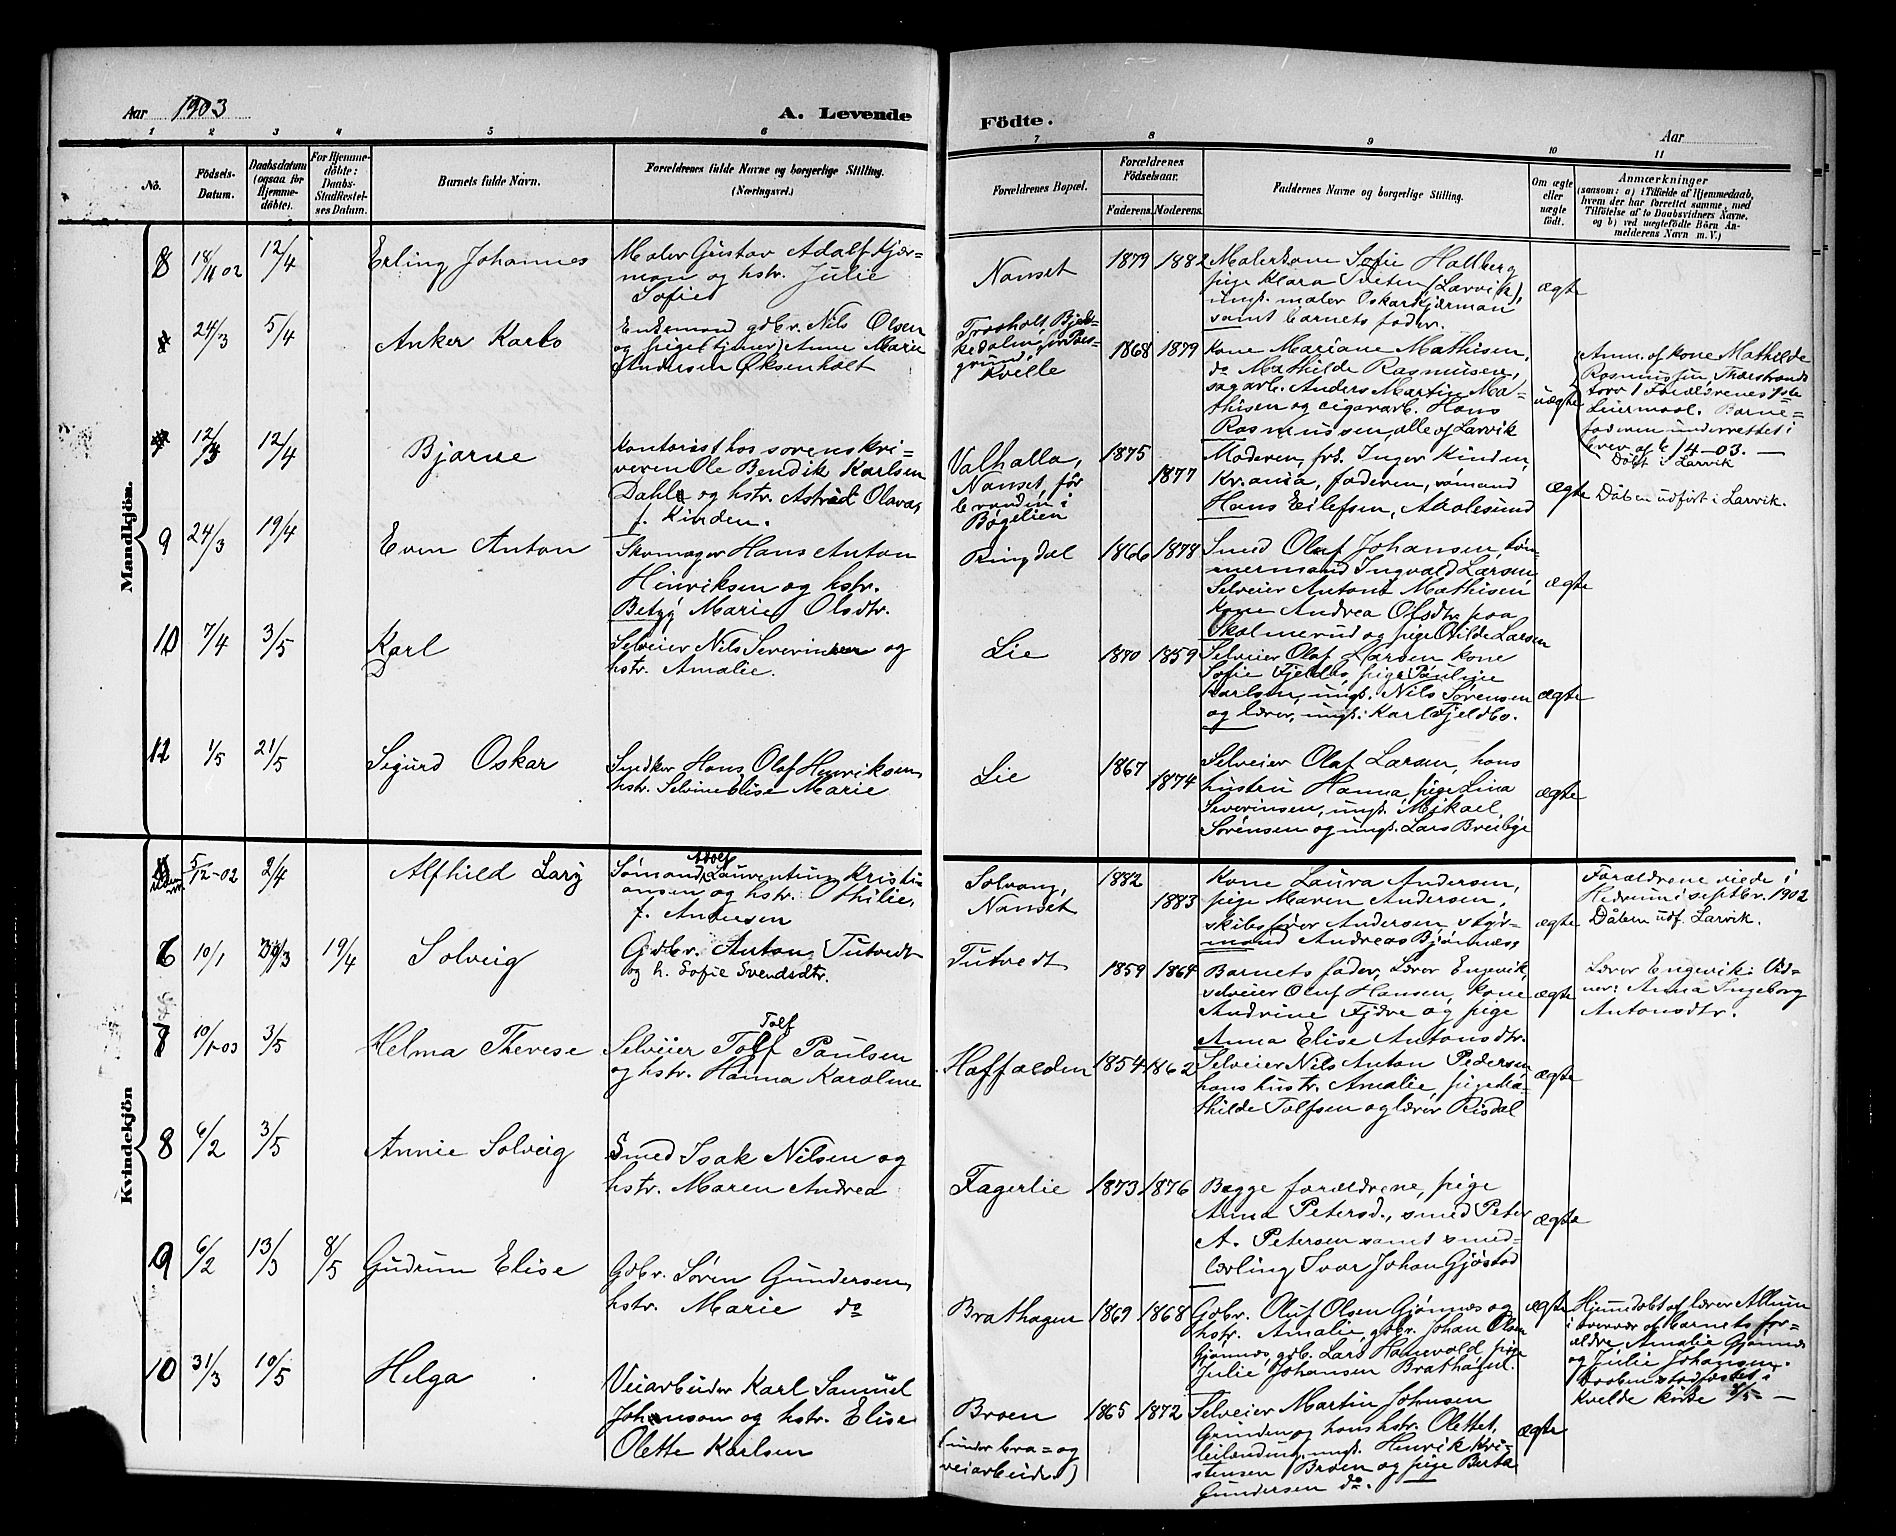 Aar 1903
A. Levende
1 2 3 4 5 6
No.
Födsels-
Datum.
Daabsdatum
(ogsaa for
Hjemme-
döbte).
For Hjemme-
döbte:
Daabs-
Stadfæstel-
ses Datum.
Barnets fulde Navn.
Forældrenes fulde Navne og borgerlige Stilling.
(Næringsvei.)
Mandkjön.
8 18/11 02 12/4 Erling Johannes
Maler Gustav Adolf Kjær-
man og hstr. Julie
Sofie
24/3 5/4 Anker Karlo
Enkemand gdbr. Nils Olsen
og pige (tjener) Anne Marie
Andersen Øksenholt
12/3 12/4 Bjarne
Kontorist hos sorenskri-
veren Ole Bendik Karlsen
Dahl og hstr. Astrid Olava,
f. Kinden.
9 24/3 19/4 Even Anton
Skomager Hans Anton
Henriksen og hstr.
Betzy Marie Olsdtr.
10 7/4 3/5 Karl
Selveier Nils Severinsen og
hstr. Amalie.
12 1/5 21/5 Sigurd Oskar
Snedker Hans Olaf Henriksen,
hstr. Selvine Elise Marie
Kvindekjön
5/12-02 2/4 Alfhild Lary
Adolf
Sømand Laurentius Kristi-
ansen og hstr. Othilie,
f. Andersen
6 10/1 19/4 Solveig
Gdbr. Anton Tutvedt
og h. Sofie Svendsdtr.
7 10/1-03 3/5 Helma Therese
Tolf
Selveier Tolf Paulsen
og hstr. Hanna Karoline
8 6/2 3/5 Annie Solveig
Smed Isak Nilsen og
hstr. Maren Andrea
9 6/2 13/3 8/5 Gudrun Elise
Gdbr. Søren Gundersen,
hstr. Marie do
10 31/3 10/5 Helga
Veiarbeider Karl Samuel
Johanson og hstr. Elise
Olette Karlsen
Födte.
Aar
7 8 9 10 11
Forældrenes Bopæl.
Forældrenes
Födselsaar.
Faderens. Moderens.
Faddernes Navne og borgerlige Stilling.
Om ægte
eller
uægte
födt.
Anmærkninger
(saasom: a) i Tilfælde af Hjemmedaab,
hvem der har forrettet samme, med
Tilföielse af to Daabsvidners Navne,
og b) ved uægtefödte Börn An-
melderens Navn m. V.)
Nanset 1879 1882
Malerkone Sofie Hallberg
pige Klara Tveten (Larvik),
ungk. maler Oskar Kjærman
samt barnets fader.
ægte
Kvelle
1868 1879
Kone Mariane Mathisen,
do Mathilde Rasmusen,
sagarb. Anders Martin Ma-
thisen og cigararb. Hans
Rasmussen, alle af Larvik
uægte
Anm. af kone Mathilde
Rasmussen, Thorstrands
torv 1 Forældrenes 1ste
Leiermaal. Barne-
faderen underrettet i
brev af 6/4-03. —
Døbt i Larvik
Valhalla,
Nanset, før
branden i
Bøgelien
1875 1877
Moderen, frk. Inger Kinden,
Kr.ania, faderen, sømand
Hans Eilefsen, Aalesund
ægte
Dåben udført i Larvik.
Ringdal 1866 1878
Smed Olaf Johansen, tøm-
mermand Ingvald Larsen,
Selveier Anton Mathisen
Kone Andrea Olsdtr. paa
Skolmerud og pige Hilde Larsen
ægte
Lie 1870 1859
Selveier Olaf Larsen, kone
Sofie Fjeldbo, pige Pauline
Karlsen, ungk. Nils Sørensen
og lærer, ungk. Karl Fjeldbo.
ægte
Lie 1867 1874
Selveier Olaf Larsen, hans
hustru Hanna, pige Lina
Severinsen, ungk. Mikael
Sørensen og ungk. Lars Breibye
ægte
Solvang,
Nanset
1882 1883
Kone Laura Andersen,
pige Maren Andersen,
skibsfører Andersen, styr-
mand Andreas Bjønnæss
ægte
Forældrene viede i
Hedrum i septbr. 1902
Dåben udf. Larvik.
Tutvedt 1859 1864
Barnets fader, Lærer Engevik,
selveier Oluf Hansen, kone
Andrine Fjære og pige
Anna Elise Antonsdtr.
ægte
Lærer Engevik. Vid-
ner: Anna Ingeborg
Antonsdtr.
Haffalden 1854 1862
Selveier Nils Anton Pedersen
hans hustr. Amalie, pige Ma-
thilde Tolfsen og lærer Risdal
ægte
Fagerlie 1873 1876
Begge forældrene, pige
Anna Petersd., smed Peter
A. Petersen samt smed-
lærling Ivar Johan Gjøstad
ægte
Brathagen 1869 1868
Gdbr. Oluf Olsen Gjønnes og
hstr. Amalie, gdbr. Johan Olsen
Gjønnes, gdb. Lars Hanevold, pige
Julie Johansen Brathagen.
ægte
Hjemmdøbt af lærer Allum
i overvær af barnets for-
ældre Amalie Gjønnes
og Julie Johansen.
Daaben stadfæstet i
Kvelde kirke 8/5 —
Broen
(under bra= og
veiarbeide.)
1865 1872
Selveier Martin Johnsen
Grinden og hans hstr. Olettet,
leilending, ungk. Henrik Kri-
stensen Broen og pige Berta
Gundersen do.
ægte